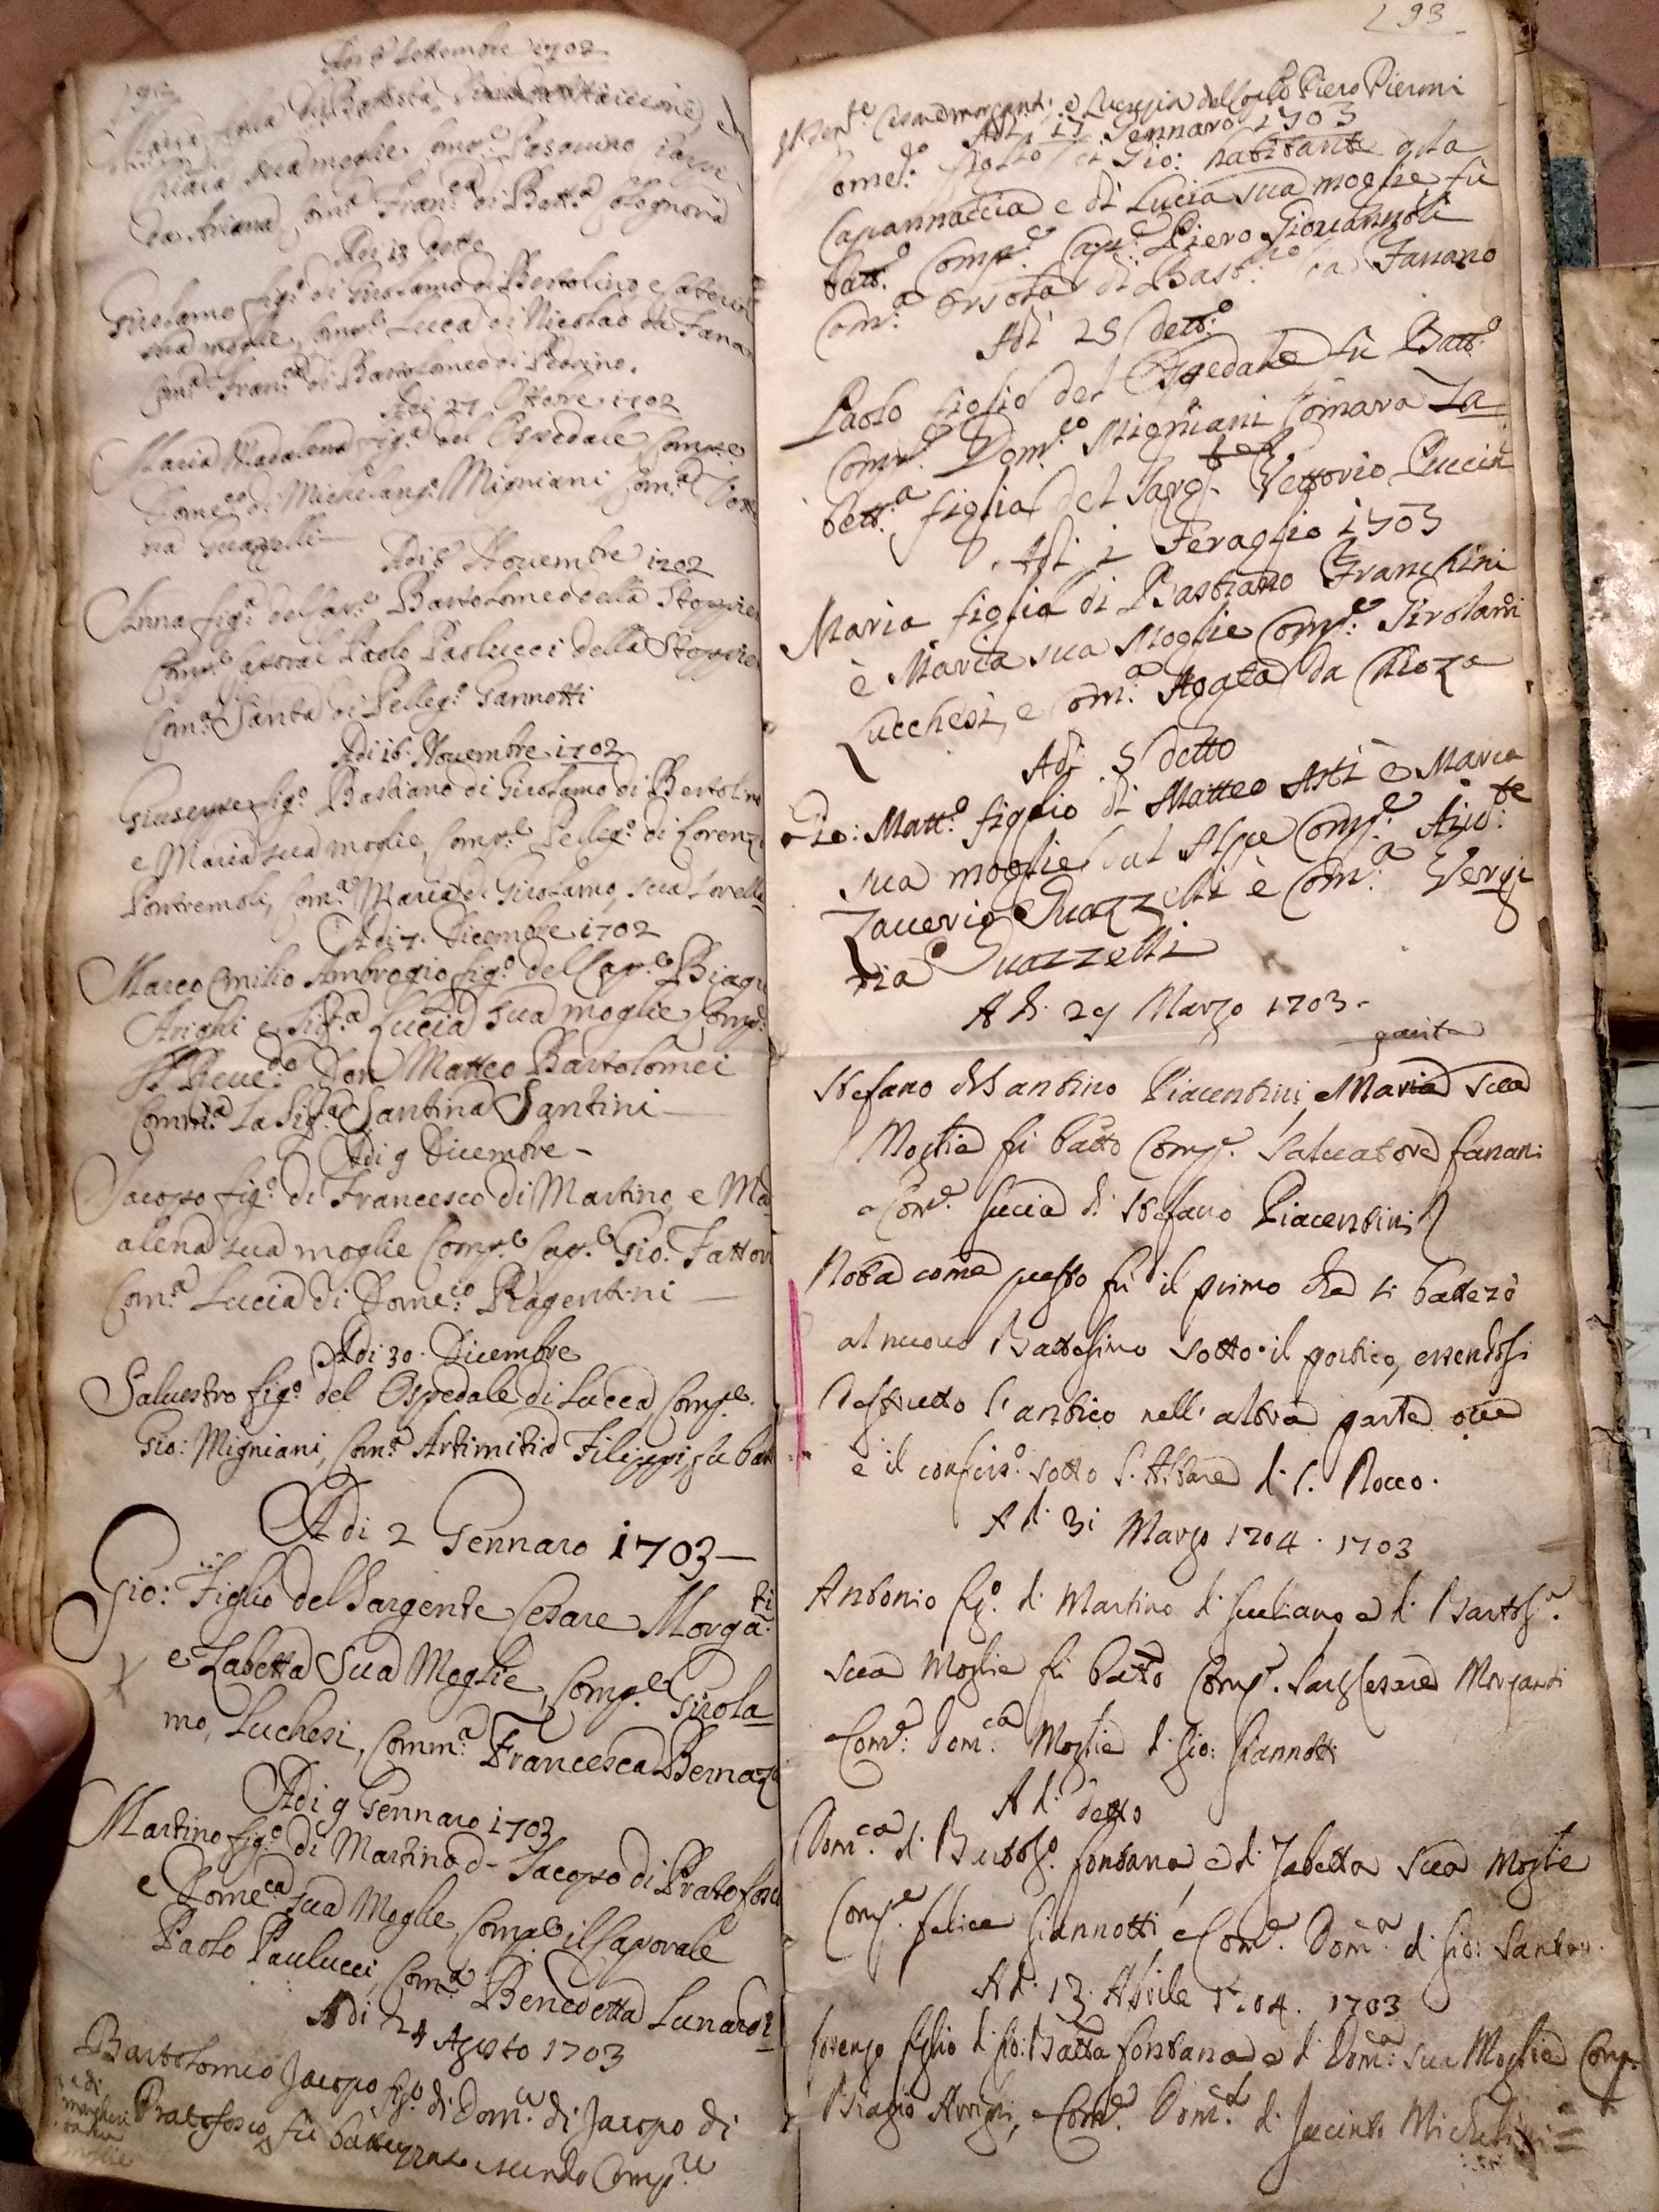 Settembre 1702
Maria figlia di Batista
sua moglie Comp.e Pasquino
da Ariana, Com.e Fran.ca di Batt.a
Adi 13 detto
Girolamo fig.o di Girolamo di Bertolino e Caterina
sua moglie, Comp.e Luca di Nicolao da Fana
Com.a Fran.ca di Bartolomeo di Pedrino.
Adi 27 Ottore 1702
Maria Madalena fig.a del Ospedale Comp.e
Dome.co di Michelang.o Migniani Com.a
na Guazzelli
Adi 6 Nouembre 1702
Anna fig.a del Cap.e Bartolomeo della Stoppie
Comp.e Caporal Paolo Paolucci della Stoppie
Com.a Santa di Pelleg.o Gannotti
Adi 16 Nouembre 1702
Giuseppe fig.o Bastiano di Girolamo di Bertolino
e Maria sua moglie, Comp.e Pelleg.o di Lorenz
Pontremoli, Com.a Maria di Girolamo, sua sorella
Adi 7. Dicembre 1702
Marco Emilio Ambrogio fig.o del Cap.e Biagi
Arighi e Sig.ra Lucia sua moglie Comp.
Il Reue.do Don Matteo Bartolomei
Comm.a La Sig.ra Santina Santini
Adi 9 Dicembre
Jacopo fig.o di Francesco di Martino, e Ma
alena sua moglie Comp.e Cap.e Gio. Fattori
Com.a Lucia di Dome.co Piagentini
Adi 30. Dicembre
Saluestro fig.o del Ospedale di Lucca Comp.e
Gio: Migniani, Com.a Artimitia Filippi, fu bat
Adi 2 Gennaro 1703
Gio: Figlio del Sargente Cesare Morga.ti
e Zabetta Sua Moglie, Comp.e Girola
mo, Luchesi, Comm.a Francesca Bernaz
Adi 9 Gennaro 1703
Martino fig.o di Martino d. Jacopo di Prato fosco
e Dome.ca sua Moglie, Comp.e il Caporale
Paolo Paulucci, Com.a Benedetta Lunardi
Adi 24 Agosto 1703
Bartolomeo Jacopo fig.o di Dom.co di Jacopo di
Pratofosco fu battezzato essendo Comp.re
e di
margheri
ta sua
moglie
93
Sargente Cesare morganti; e Lucrezia del Capo Piero Pierini
Adi 17 Gennaro 1703
Dome.co figlio di Gio: habitante alla
Capannaccia e di Lucia sua moglie fù
batt.o Comp.e Cap.e Piero Giouannoli
Com.a Orsola di Bast.no da Fanano
Adi 25 dett.o
Paolo figlio del Ospedale fù Batt.o
Comp.e Dom.co Migniani Comara Za
bett.a figlia del Sarg.te Vettorio Puccin
Adi 1 Feraglio 1703
Maria figlia di Bastiano Franchini
è Maria sua Moglie Comp.e Girolami
Lucchesi, e Com.a Agata da Chioza
Adi 5 detto
Gio: Matt.o figlio di Matteo Asti è Maria
sua moglie dal Alpe Comp.e Aiut.te
Zauerio Guazzelli è Com.a Vergi
nia Guazzelli
A di 29 Marzo 1703.
gratia
Stefano di Santino Piacentini, e Maria sua
Moglie fu batto Comp.e Saluatore fanani
e Com.e Lucia di Stefano Piacentini
Nota come questo fu il primo che si battezò
al nuouo Battesimo sotto il portico, essendosi
destrutto l'antico nell'altra parte oue
è il confess.o sotto l'Altare di S. Rocco.
A di 31 Marzo 1704. 1703
Antonio fig.o di Martino di Giuliano e di Bartol.a
sua Moglie fu batto Comp.e Sarg. Cesare Morganti
e Com.e Dom.ca Moglie di Gio: Giannotti
A di detto
Dom.ca di Bartol.o fontana e di Zabetta sua Moglie
Comp.e felice Giannotti, e Com.e Dom.a di Gio: Santin.
A di 13. Aprile 1704. 1703
Lorenzo figlio di Gio: Batta fontana e di Dom.a sua Moglie Comp.e
Biagio Arrighi, e Com.e Dom.a di Jacinto Michelini